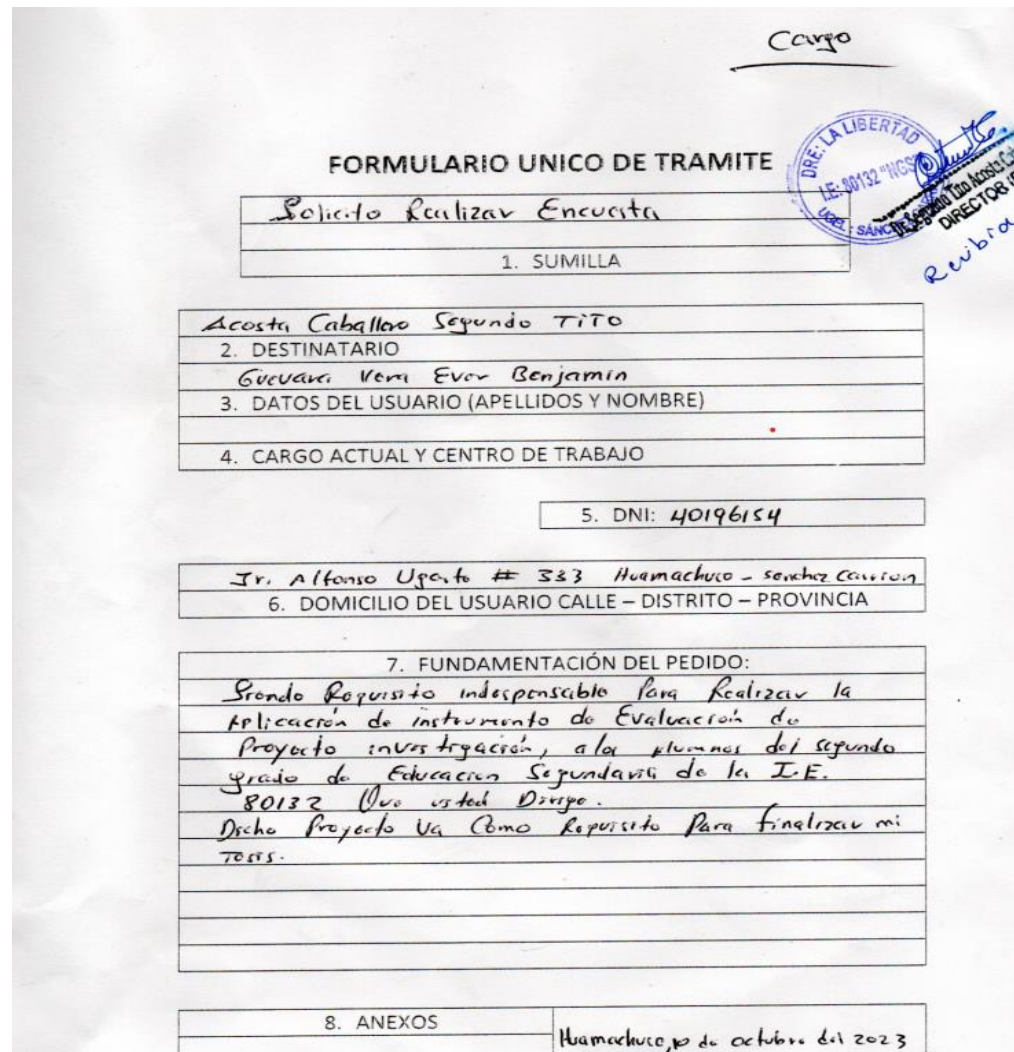 Cargo
DRE: LA LIBERTAD
I.E: 80132 "NGS"
UGEL: SÁNC
Segundo Tito Acosta Cab
DIRECTOR (E
Recibido
FORMULARIO UNICO DE TRAMITE
Solicito Realizar Encuesta
1. SUMILLA
Acosta Caballero Segundo TiTO
2. DESTINATARIO
Guevara Vera Ever Benjamin
3. DATOS DEL USUARIO (APELLIDOS Y NOMBRE)
4. CARGO ACTUAL Y CENTRO DE TRABAJO
5. DNI: 40196154
Jr. Alfonso Ugarte # 333 Huamachuco - sanchez Carrion
6. DOMICILIO DEL USUARIO CALLE – DISTRITO – PROVINCIA
7. FUNDAMENTACIÓN DEL PEDIDO:
Siendo Requisito indespensable Para Realizar la
Aplicación de instrumento de Evaluación de
Proyecto investigación, a los alumnos del segundo
grado de Educacion Segundaria de la I.E.
80132 Que usted Dirige.
Dicho Proyecto Va Como Requisito Para finalizar mi
Tesis.
8. ANEXOS
Huamachuco, 10 de octubre del 2023